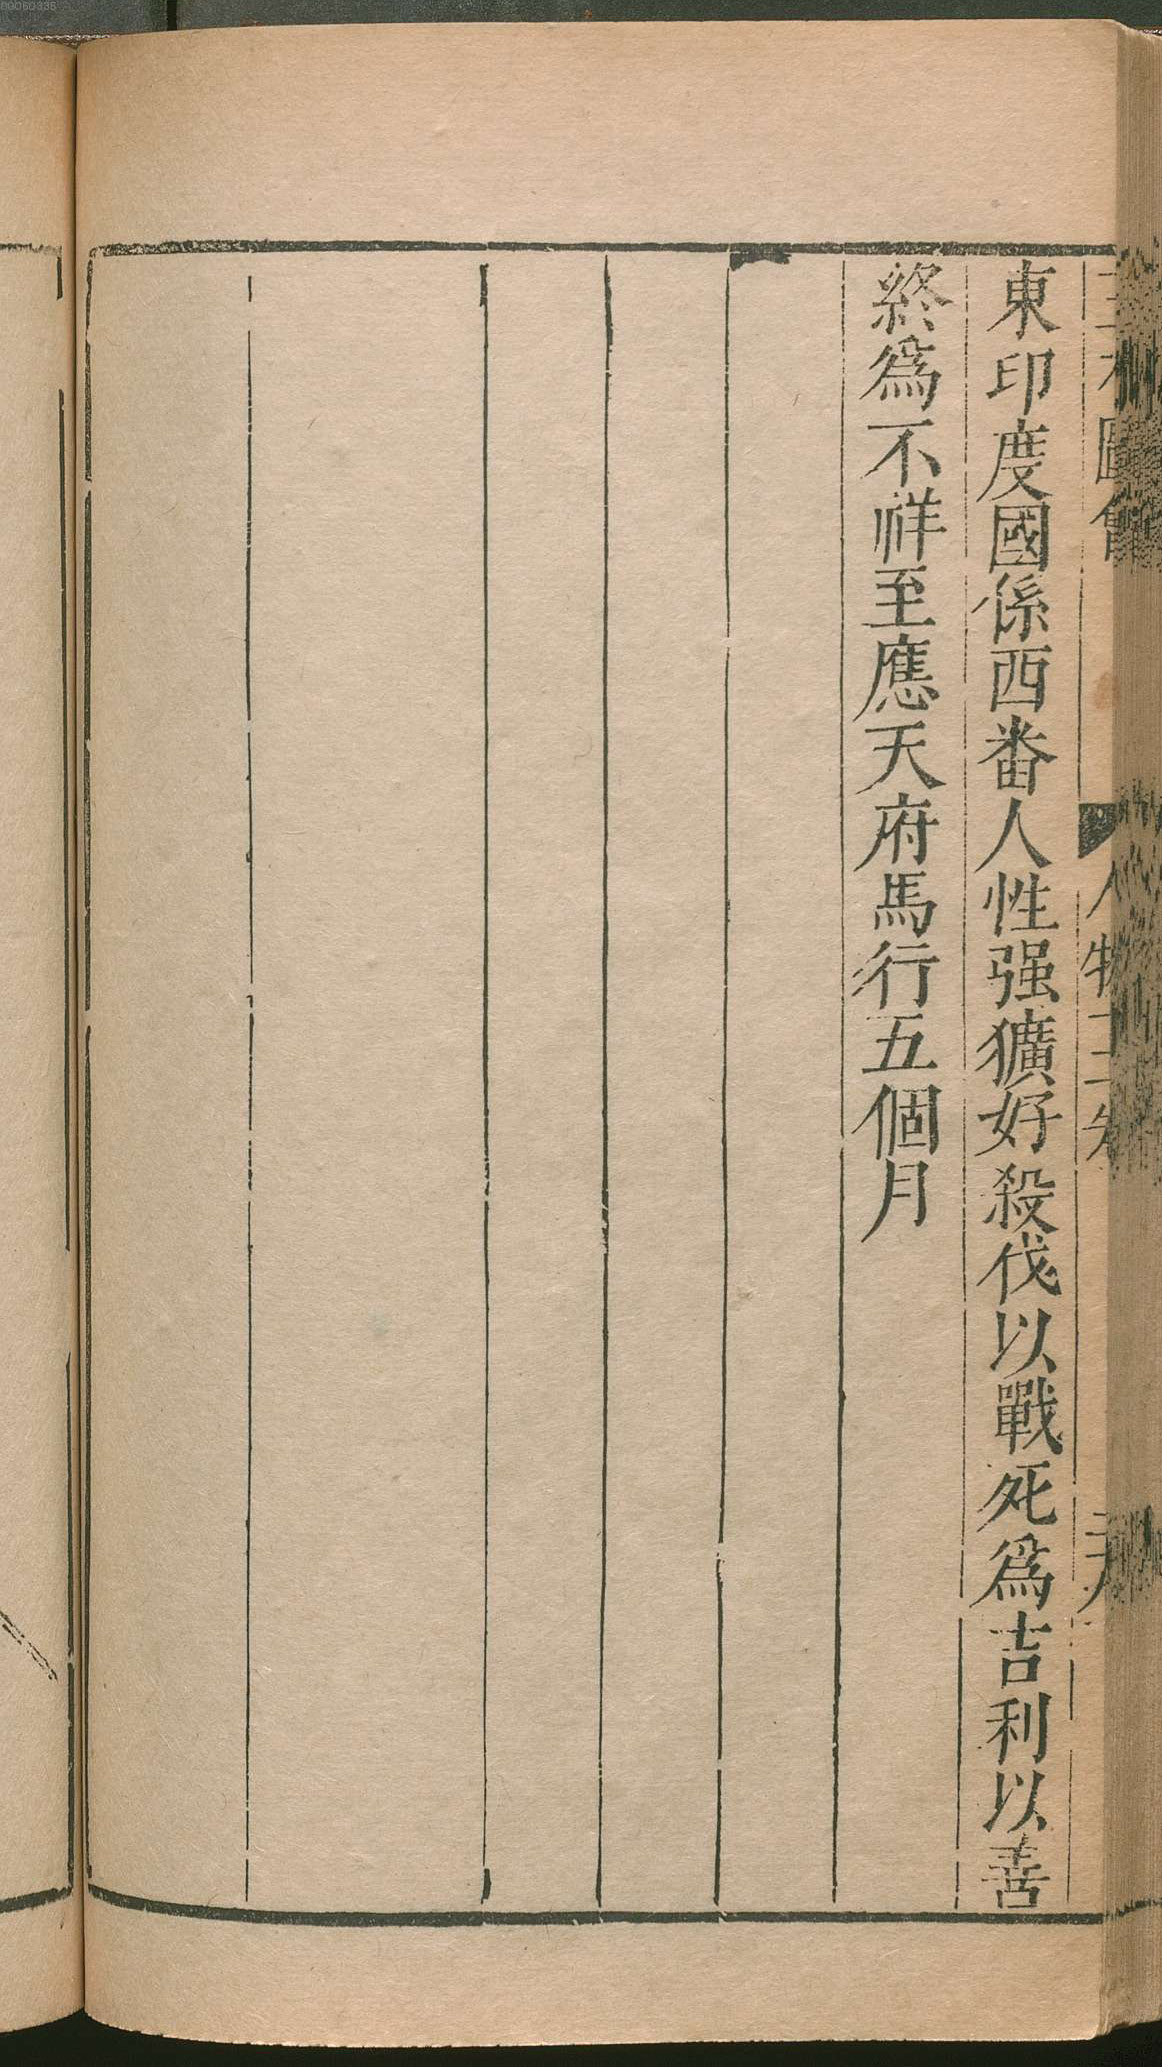 東印度國係西番人性强獷好殺伐以戰死爲吉利以善
終爲不祥至應天府馬行五個月